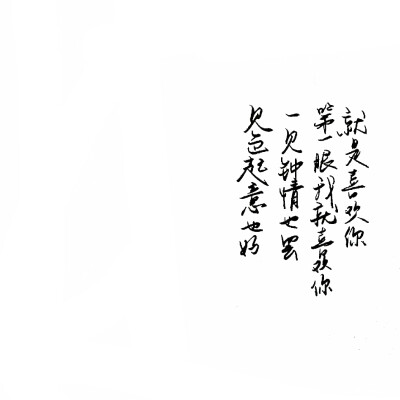 见色起意也好
一见钟情也罢
第一眼我就喜欢你
就是喜欢你